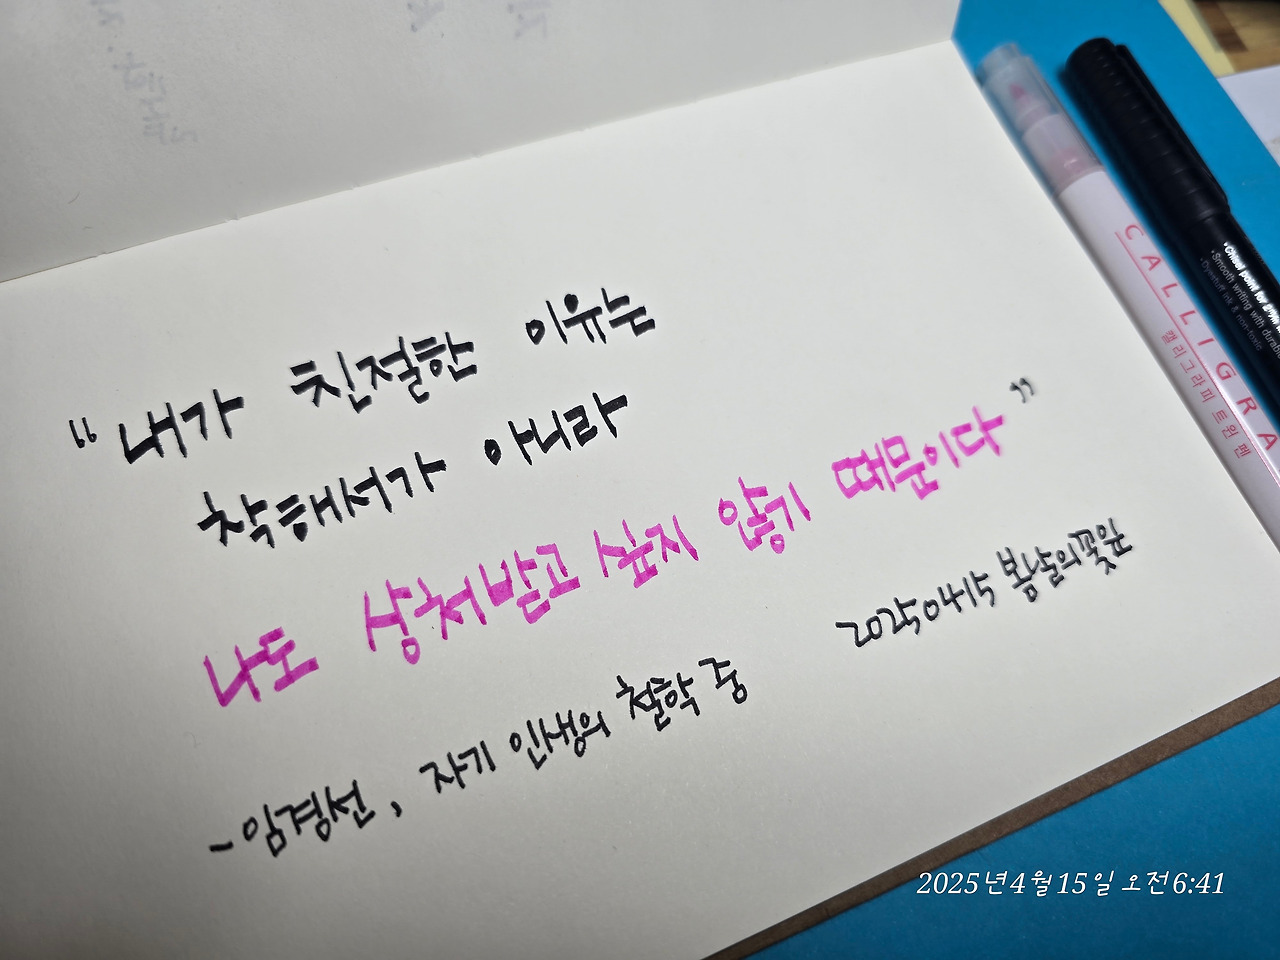 "내가 친절한 이유는
착해서가 아니라
나도 상처받고 싶지 않기 때문이다"
20250415 봄날의꽃잎
- 임경선, 자기 인생의 철학 중
CALLIGRA
캘리그라피 트윈 펜
• Chisel point for
• Smooth writing with
• Dyestuff ink & non-toxic
2025년 4월 15일 오전 6:41